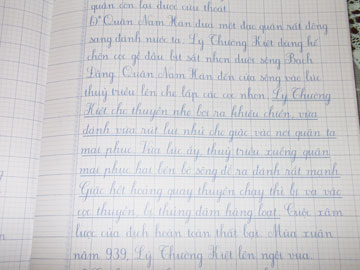 quân còn lại được cứu thoát.
b) Quân Nam Hán đưa một đạo quân rất đông
sang đánh nước ta. Lý Thường Kiệt dụng kế
chôn cọc gỗ đầu bịt sắt nhọn dưới sông Bạch
Đằng. Quân Nam Hán đến cửa sông vào lúc
thuỷ triều lên che lấp các cọc nhọn. Lý Thường
Kiệt cho thuyền nhẹ bơi ra khiêu chiến, vừa
đánh vừa rút lui nhử cho giặc vào nơi quân ta
mai phục. Vừa lúc ấy thuỷ triều xuống quân
mai phục hai bên bờ sông đổ ra đánh rất mạnh.
Giặc hốt hoảng quay thuyền chạy thì bị va vào
cọc thuyền, bị thủng đắm hàng loạt. Cuộc xâm
lược của địch hoàn toàn thất bại. Mùa xuân
năm 939, Lý Thường Kiệt lên ngôi vua.